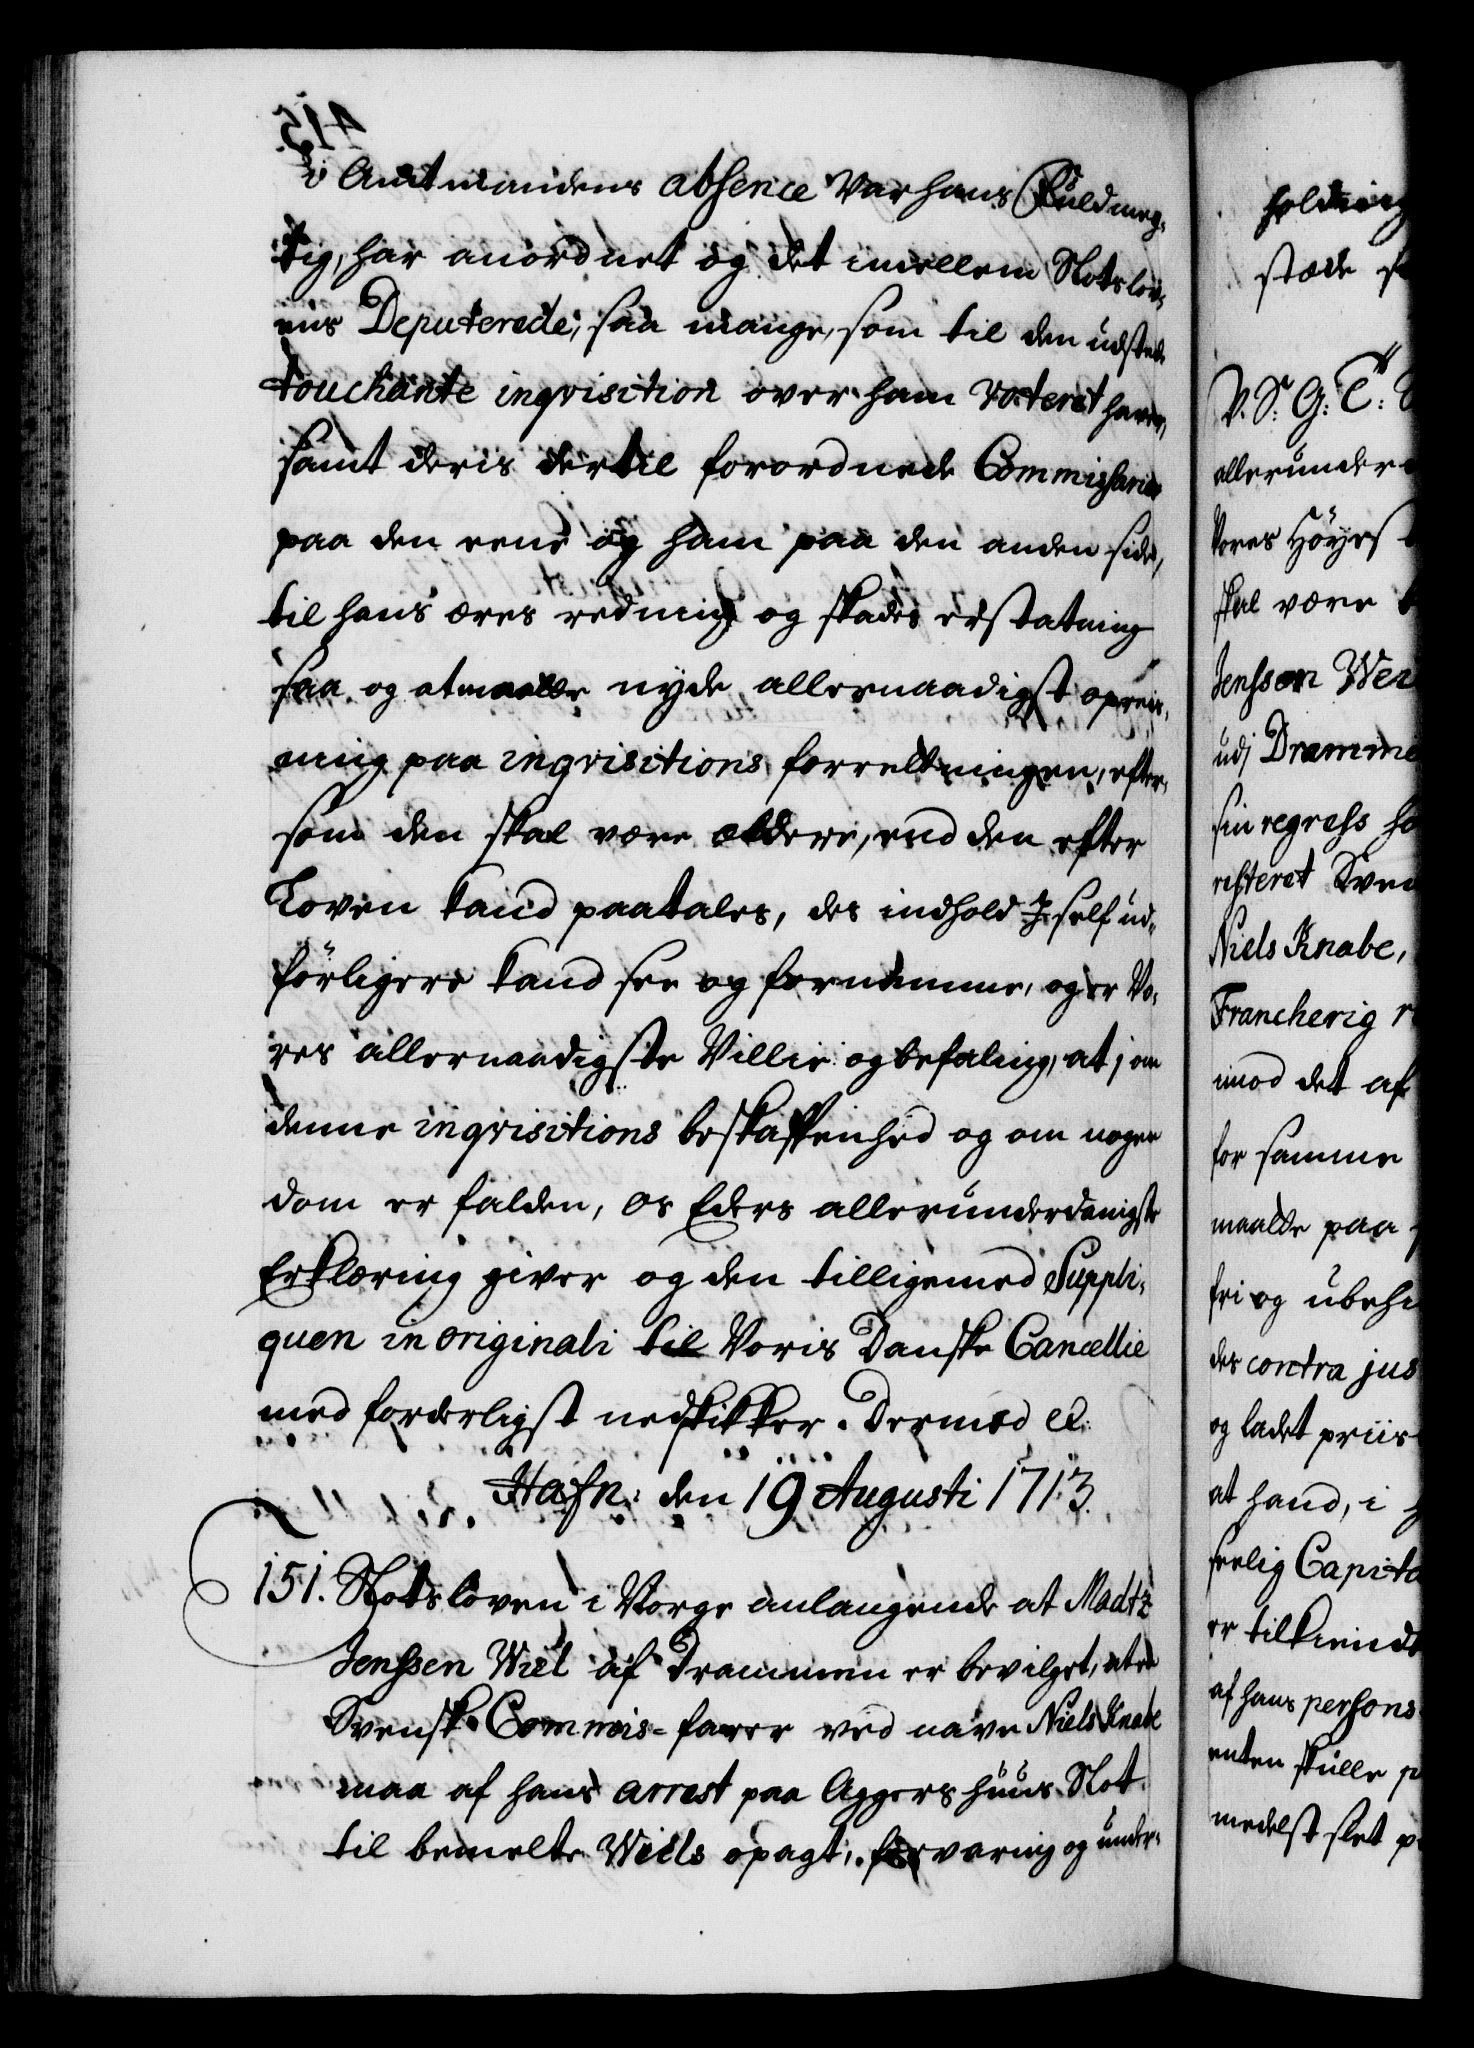 i Amtmandens absence var hans Fuldmeg-
tig, har anordnet og det imellem Slotslov-
ens Deputerede, saa mange, som til den udsted
touchante inqvisition over ham voteret haver,
samt deris dertil forordnede Commissarier
paa den eene og ham paa den anden side,
til hans æres redning og skades erstatning
saa og at maatte nyde allernaadigst opreis-
ning paa inqvisitions forretningen, efter-
som den skal være ældere, end den efter
Loven kand paatales, des indhold I self ud-
førligere kand see og fornemme, og er Vo-
res allernaadigste Villie og befaling, at i om
denne inqvisitions beskaffenhed og om nogen
dom er falden, os Eders allerunderdanigste
Erklæring giver og den tilligemed Suppli-
quen in originali til Voris Danske Cancellie
med forderligst nedskikker. Dermed etc.
Hafn: den 19 Augusti 1713.
151. Slotsloven i Norge anlangende at Madtz
Jenssen Wiel af Drammen er bevilget, at en
Svensk Commis-farer ved navn Niels Knabe
maa af hans arrest paa Aggershuus Slot
til bemelte Wiels opagt, forvaring og under-
holdning
stæde
V. S: G: T:
allerunder
Vores Høyes
skal være
Jenssøn Wei
udj Dramme
sin regress
resteret Sven
Niels Knabe,
Francherig
imod det af
for samme
maatte paa
fri og ubehi
des contra jus
og ladet priis
at hand, i
seelig Capita
er tilkiendt
af hans persons
enten skulle
medelst slet